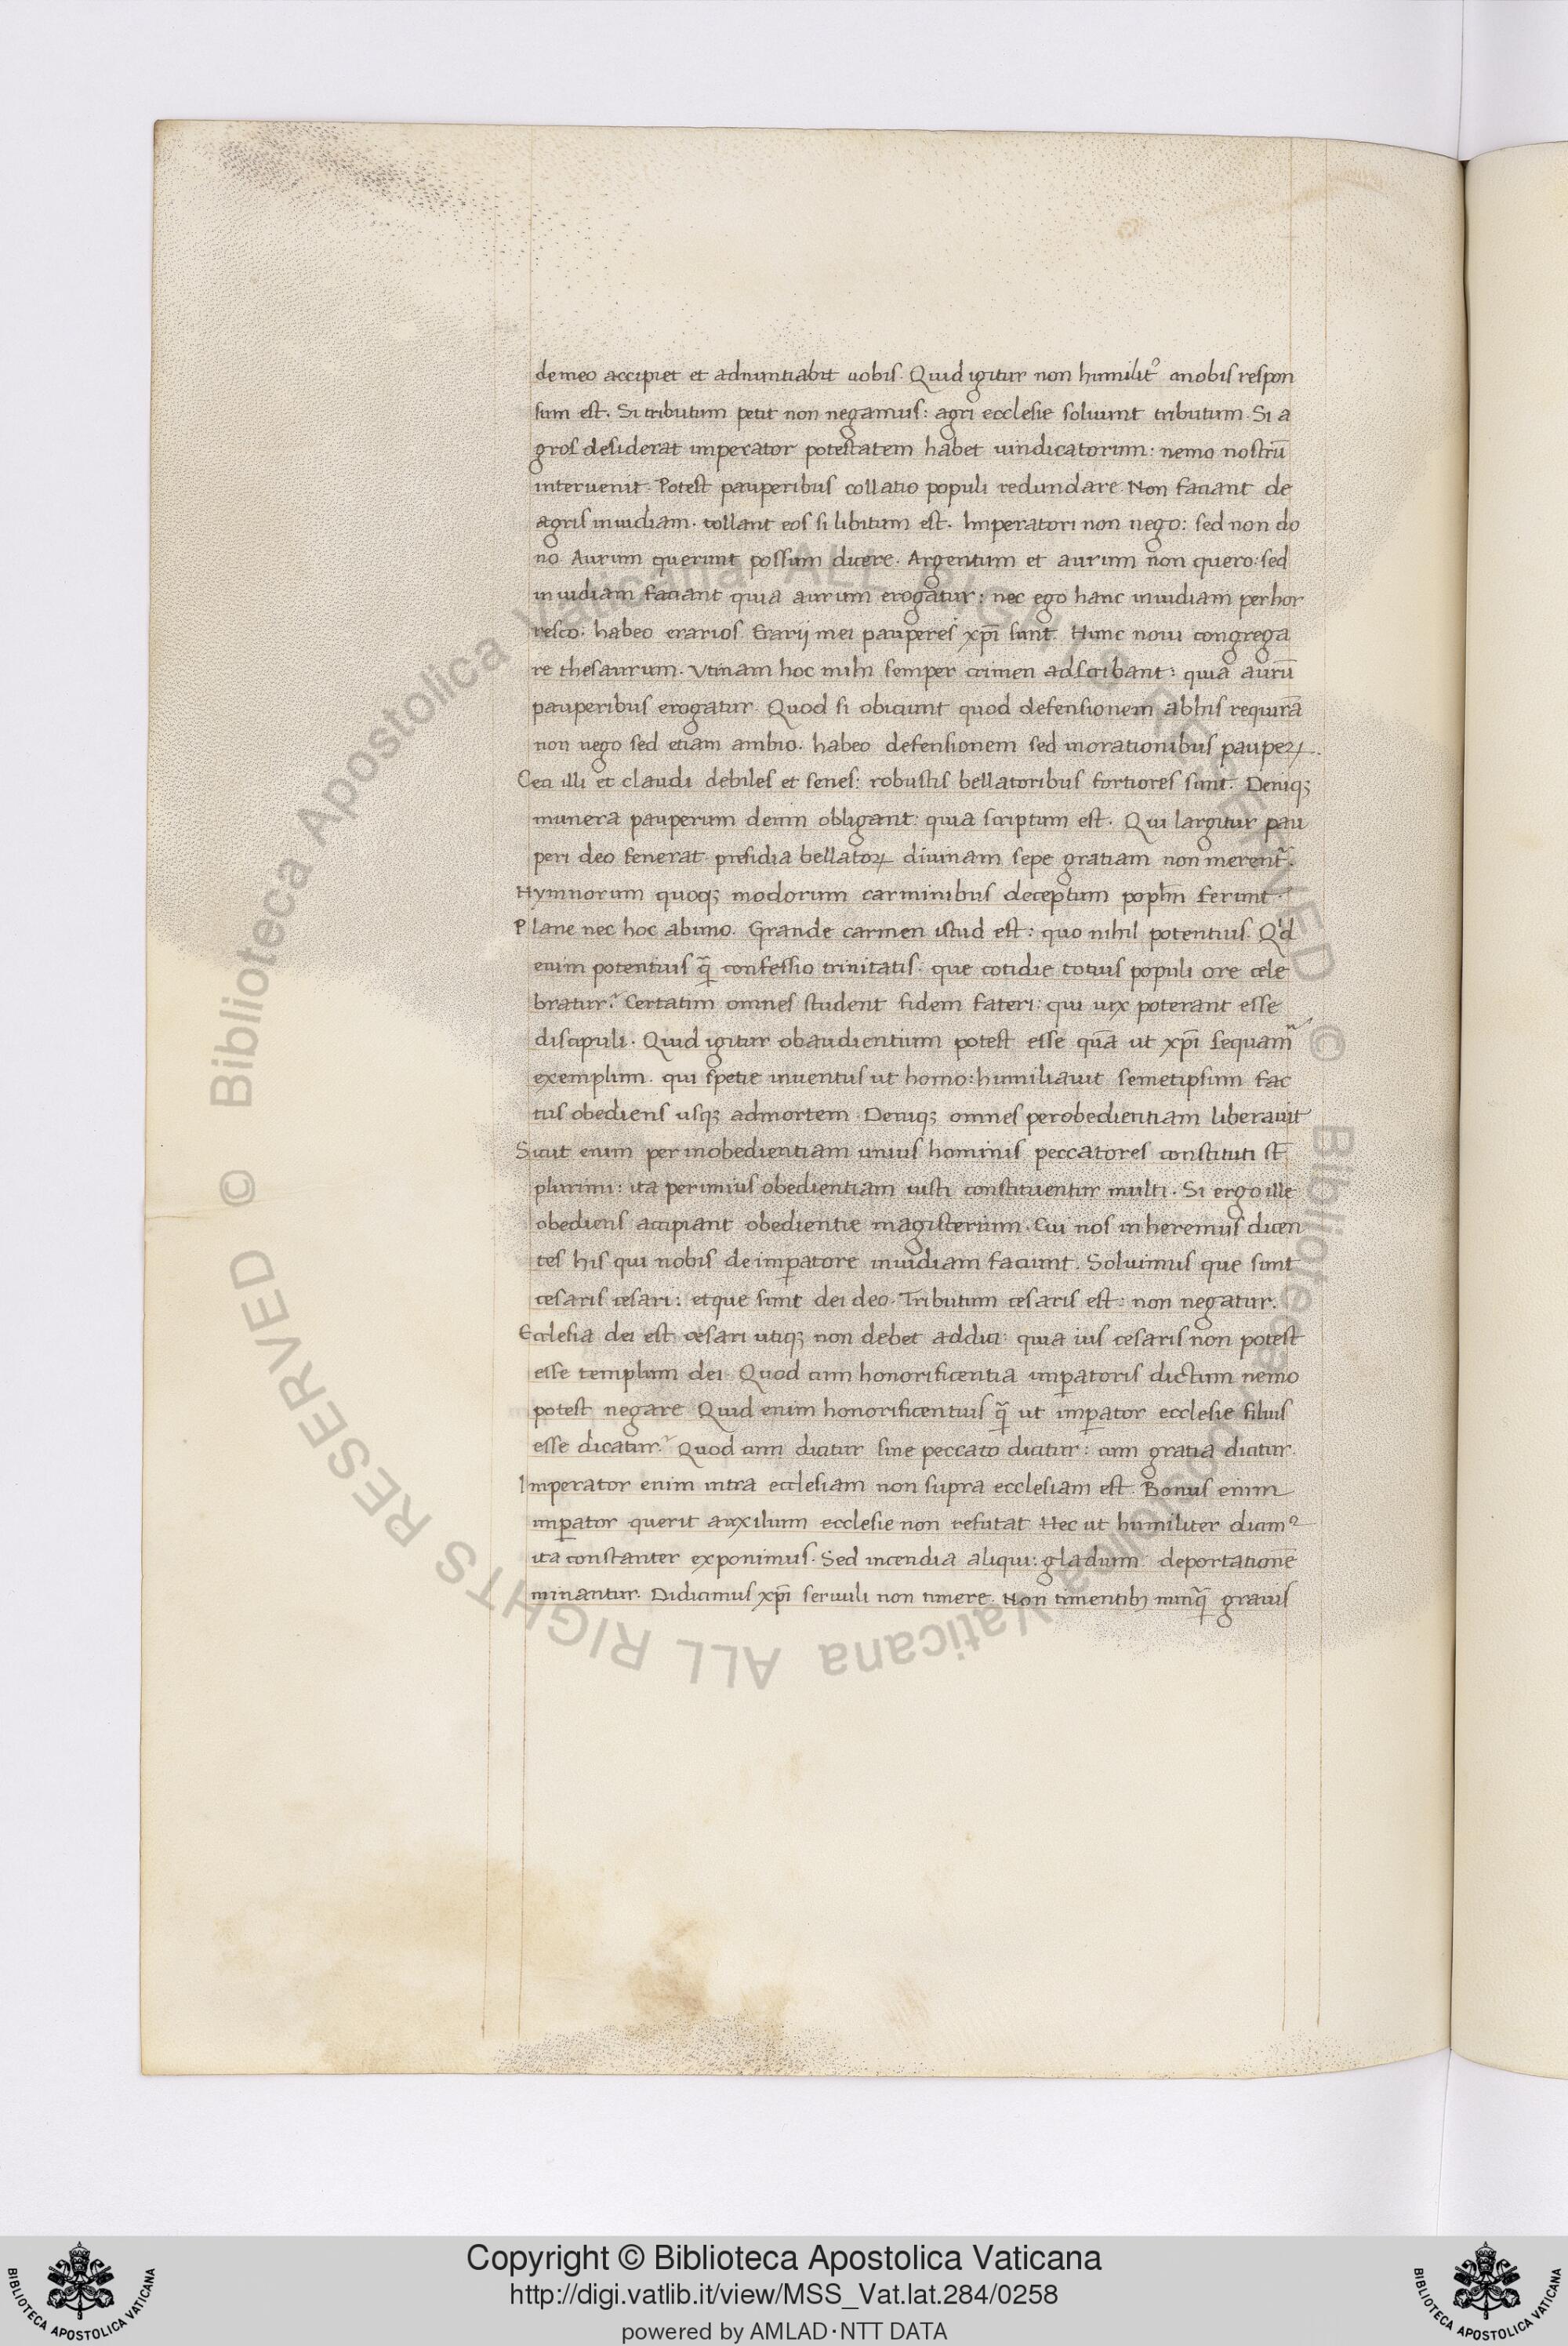 demeo accipiet et adnuntiabit uobis. Quid igitur non humilitꝰ anobis respon
sum est. Si tributum petit non negamus: agri ecclesie soluunt tributum. Si a
gros desiderat imperator potestatem habet uindicatorum: nemo nostrū
interuenit. Potest pauperibus collatio populi redundare. Non faciant de
agris inuidiam. tollant eos si libitum est. Imperatori non nego: sed non do
no. Aurum querunt possum dicere. Argentum et aurum non quero: sed
inuidiam faciant quia aurum erogatur: nec ego hanc inuidiam perhor
resco: habeo erarios. Erarij mei pauperes xp̄i sunt. Hunc noui congrega
re thesaurum. Vtinam hoc mihi semper crimen adscribant: quia aurū
pauperibus erogatur. Quod si obiciunt quod defensionem abhis requirā
non nego sed etiam ambio. habeo defensionem sed inorationibus pauperꝝ.
Ceci illi et claudi debiles et senes: robustis bellatoribus fortiores sunt. Deniqꝫ
munera pauperum deum obligant: quia scriptum est. Qui largitur pau
peri deo fenerat. presidia bellatoꝝ diuinam sepe gratiam non merent᷑.
Hymnorum quoqꝫ modorum carminibus deceptum poplm̄ ferunt.
Plane nec hoc abnuo. Grande carmen istud est: quo nihil potentius. Qͥd
enim potentius q̄̄ confessio trinitatis. que cotidie totius populi ore cele
bratur? Certatim omnes student fidem fateri: qui uix poterant esse
discipuli. Quid igitur obaudientium potest esse quā ut xp̄i sequam᷑
exemplum. qui spetie inuentus ut homo: humiliauit semetipsum fac
tus obediens usqꝫ admortem. Deniqꝫ omnes perobedientiam liberauit
Sicut enim per inobedientiam unius hominis peccatores constituti st̄
plurimi: ita perunius obedientiam iusti constituentur multi. Si ergo ille
obediens accipiant obedientie magisterium. Cui nos inheremus dicen
tes his qui nobis deimꝑatore inuidiam faciunt. Soluimus que sunt
cesaris cesari: etque sunt dei deo. Tributum cesaris est: non negatur.
Ecclesia dei est cesari utiqꝫ non debet addici: quia ius cesaris non potest
esse templum dei. Quod cum honorificentia imꝑatoris dictum nemo
potest negare. Quid enim honorificentius q̄̄ ut imꝑator ecclesie filius
esse dicatur? Quod cum dicitur sine peccato dicitur: cum gratia dicitur.
Imperator enim intra ecclesiam non supra ecclesiam est. Bonus enim
imꝑator querit auxilium ecclesie non refutat. Hec ut humiliter dicimꝰ
ita constanter exponimus. Sed incendia aliqui: gladium: deportationē
minantur. Didicimus xp̄i seruuli non timere. Non timentibꝫ nunq̄̄ grauis
© Biblioteca Apostolica Vaticana ALL RIGHTS RESERVED
© Biblioteca Apostolica Vaticana ALL RIGHTS RESERVED
Copyright © Biblioteca Apostolica Vaticana
http://digi.vatlib.it/view/MSS_Vat.lat.284/0258
powered by AMLAD·NTT DATA
BIBLIOTECA APOSTOLICA VATICANA
BIBLIOTECA APOSTOLICA VATICANA